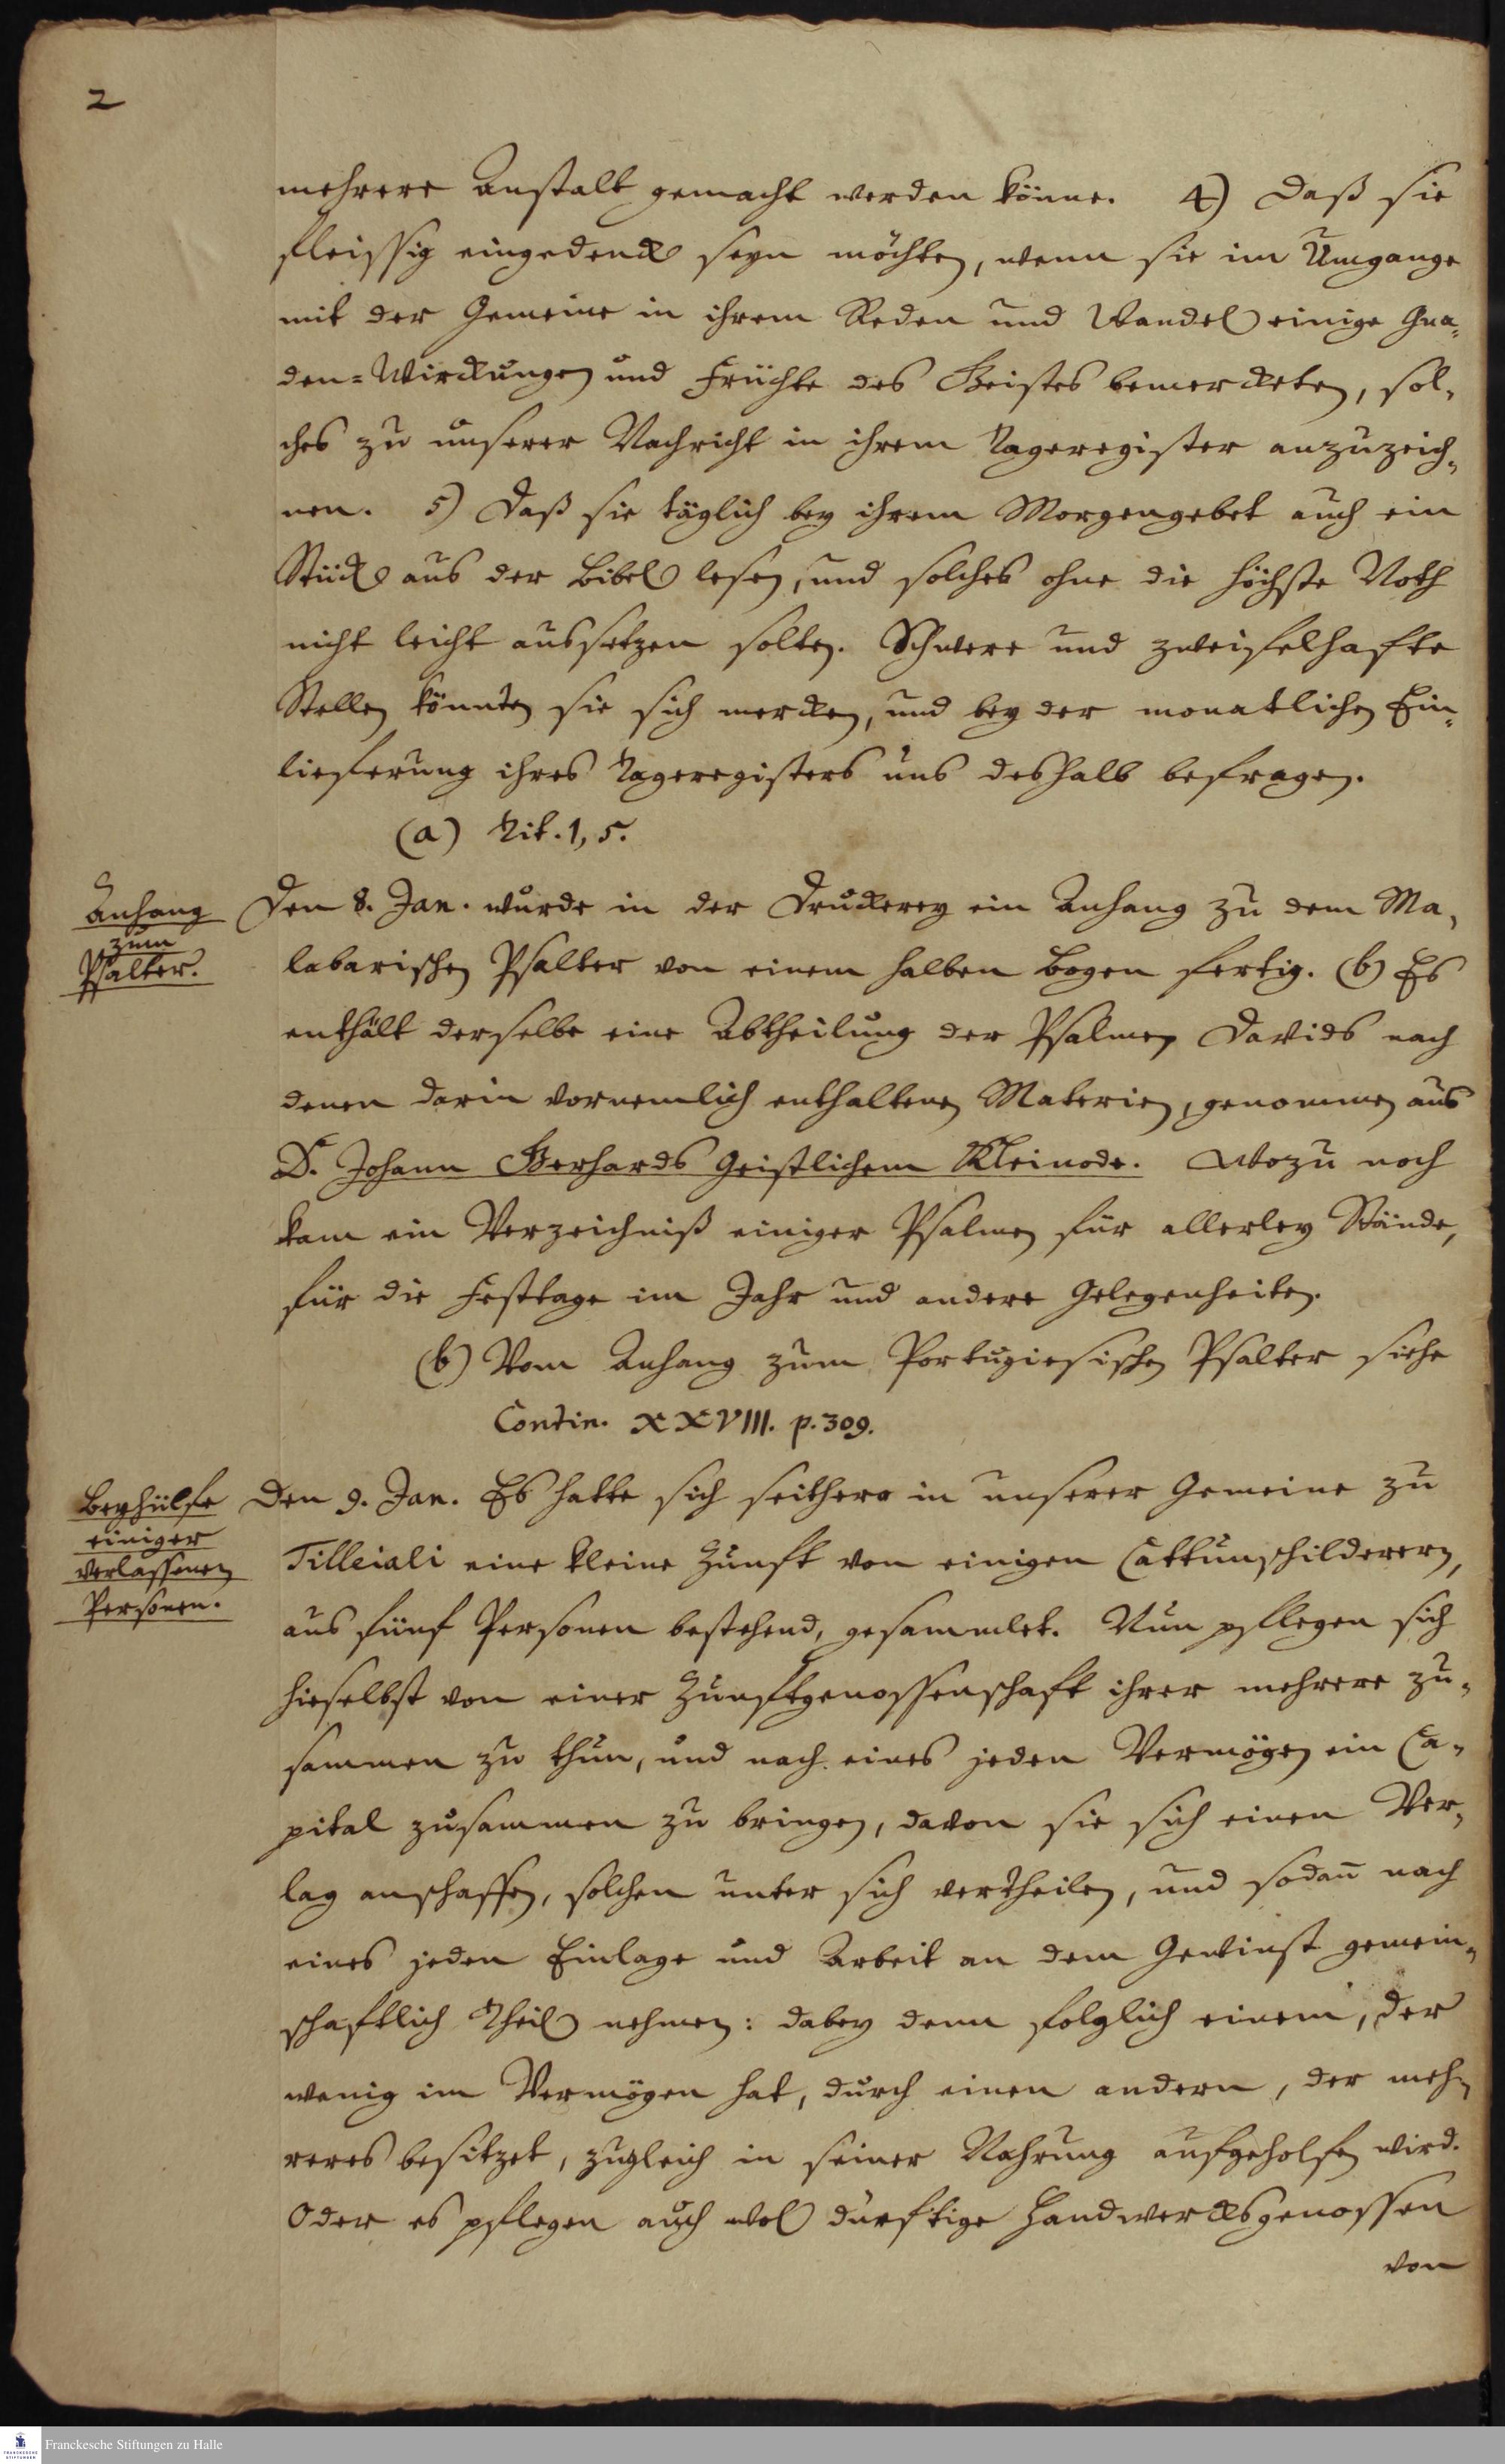 2
mehrere Anstalt gemacht werden könne. 4) Daß sie
fleissig eingedenck seyn möchten, wenn sie im Umgange
mit der Gemeine in ihrem Reden und Wandel einige Gna-
den-Wirckungen und Früchte des Geistes bemerckten, sol-
ches zu unserer Nachricht in ihrem Tageregister anzuzeich-
nen. 5) Daß sie täglich bey ihrem Morgengebet auch ein
Stück aus der Bibel lesen, und solches ohne die höchste Noth
nicht leicht aussetzen solten. Schwere und zweifelhafte
Stellen könnten sie sich mercken, und bey der monatlichen Ein-
lieferung ihres Tageregisters uns deshalb befragen.
(a) Tit. 1, 5.
Anhang
zum
Psalter.
Den 8. Jan. wurde in der Druckerey ein Anhang zu dem Ma-
labarischen Psalter von einem halben Bogen fertig. (b) Es
enthält derselbe eine Abtheilung der Psalmen Davids nach
denen darin vornemlich enthaltenen Materien, genommen aus
D. Johann Gerhards Geistlichem Kleinode. Wozu noch
kam ein Verzeichniß einiger Psalmen für allerley Stände,
für die Festtage im Jahr und andere Gelegenheiten.
(b) Vom Anhang zum Portugiesischen Psalter siehe
Contin. XXVIII. p. 309.
Beyhülfe
einiger
verlassenen
Personen.
Den 9. Jan. Es hatte sich seithero in unserer Gemeine zu
Tilleiali eine kleine Zunft von einigen Cattunschilderern,
aus fünf Personen bestehend, gesammlet. Nun pflegen sich
hieselbst von einer Zunftgenossenschaft ihrer mehrere zu-
sammen zu thun, und nach eines jeden Vermögen ein Ca-
pital zusammen zu bringen, davon sie sich einen Ver-
lag anschaffen, solchen unter sich vertheilen, und sodañ nach
eines jeden Einlage und Arbeit an dem Gewinst gemein-
schaftlich Theil nehmen: dabey denn folglich einem, der
wenig im Vermögen hat, durch einen andern, der meh-
reres besitzet, zugleich in seiner Nahrung aufgeholfen wird.
Oder es pflegen auch wol dürftige Handwercksgenossen
von
Franckesche Stiftungen zu Halle